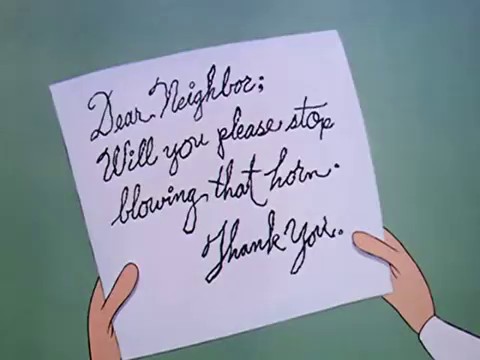 Dear Neighbor;
Will you please stop
blowing that horn.
Thank You.